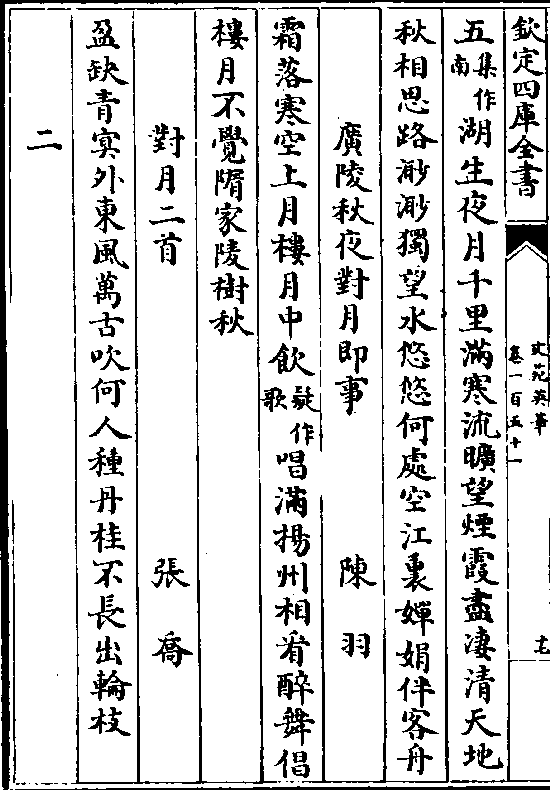 欽定四庫全書
文苑英華
卷一百五十一
十七
五集作南湖生夜月千里滿寒流曠望煙霞盡淒清天地
秋相思路渺渺獨望水悠悠何處空江裏嬋娟伴客舟
廣陵秋夜對月即事 陳羽
霜落寒空上月樓月中飲疑作歌唱滿揚州相看醉舞倡
樓月不覺隋家陵樹秋
對月二首 張喬
盈缺青冥外東風萬古吹何人種丹桂不長出輪枝
二